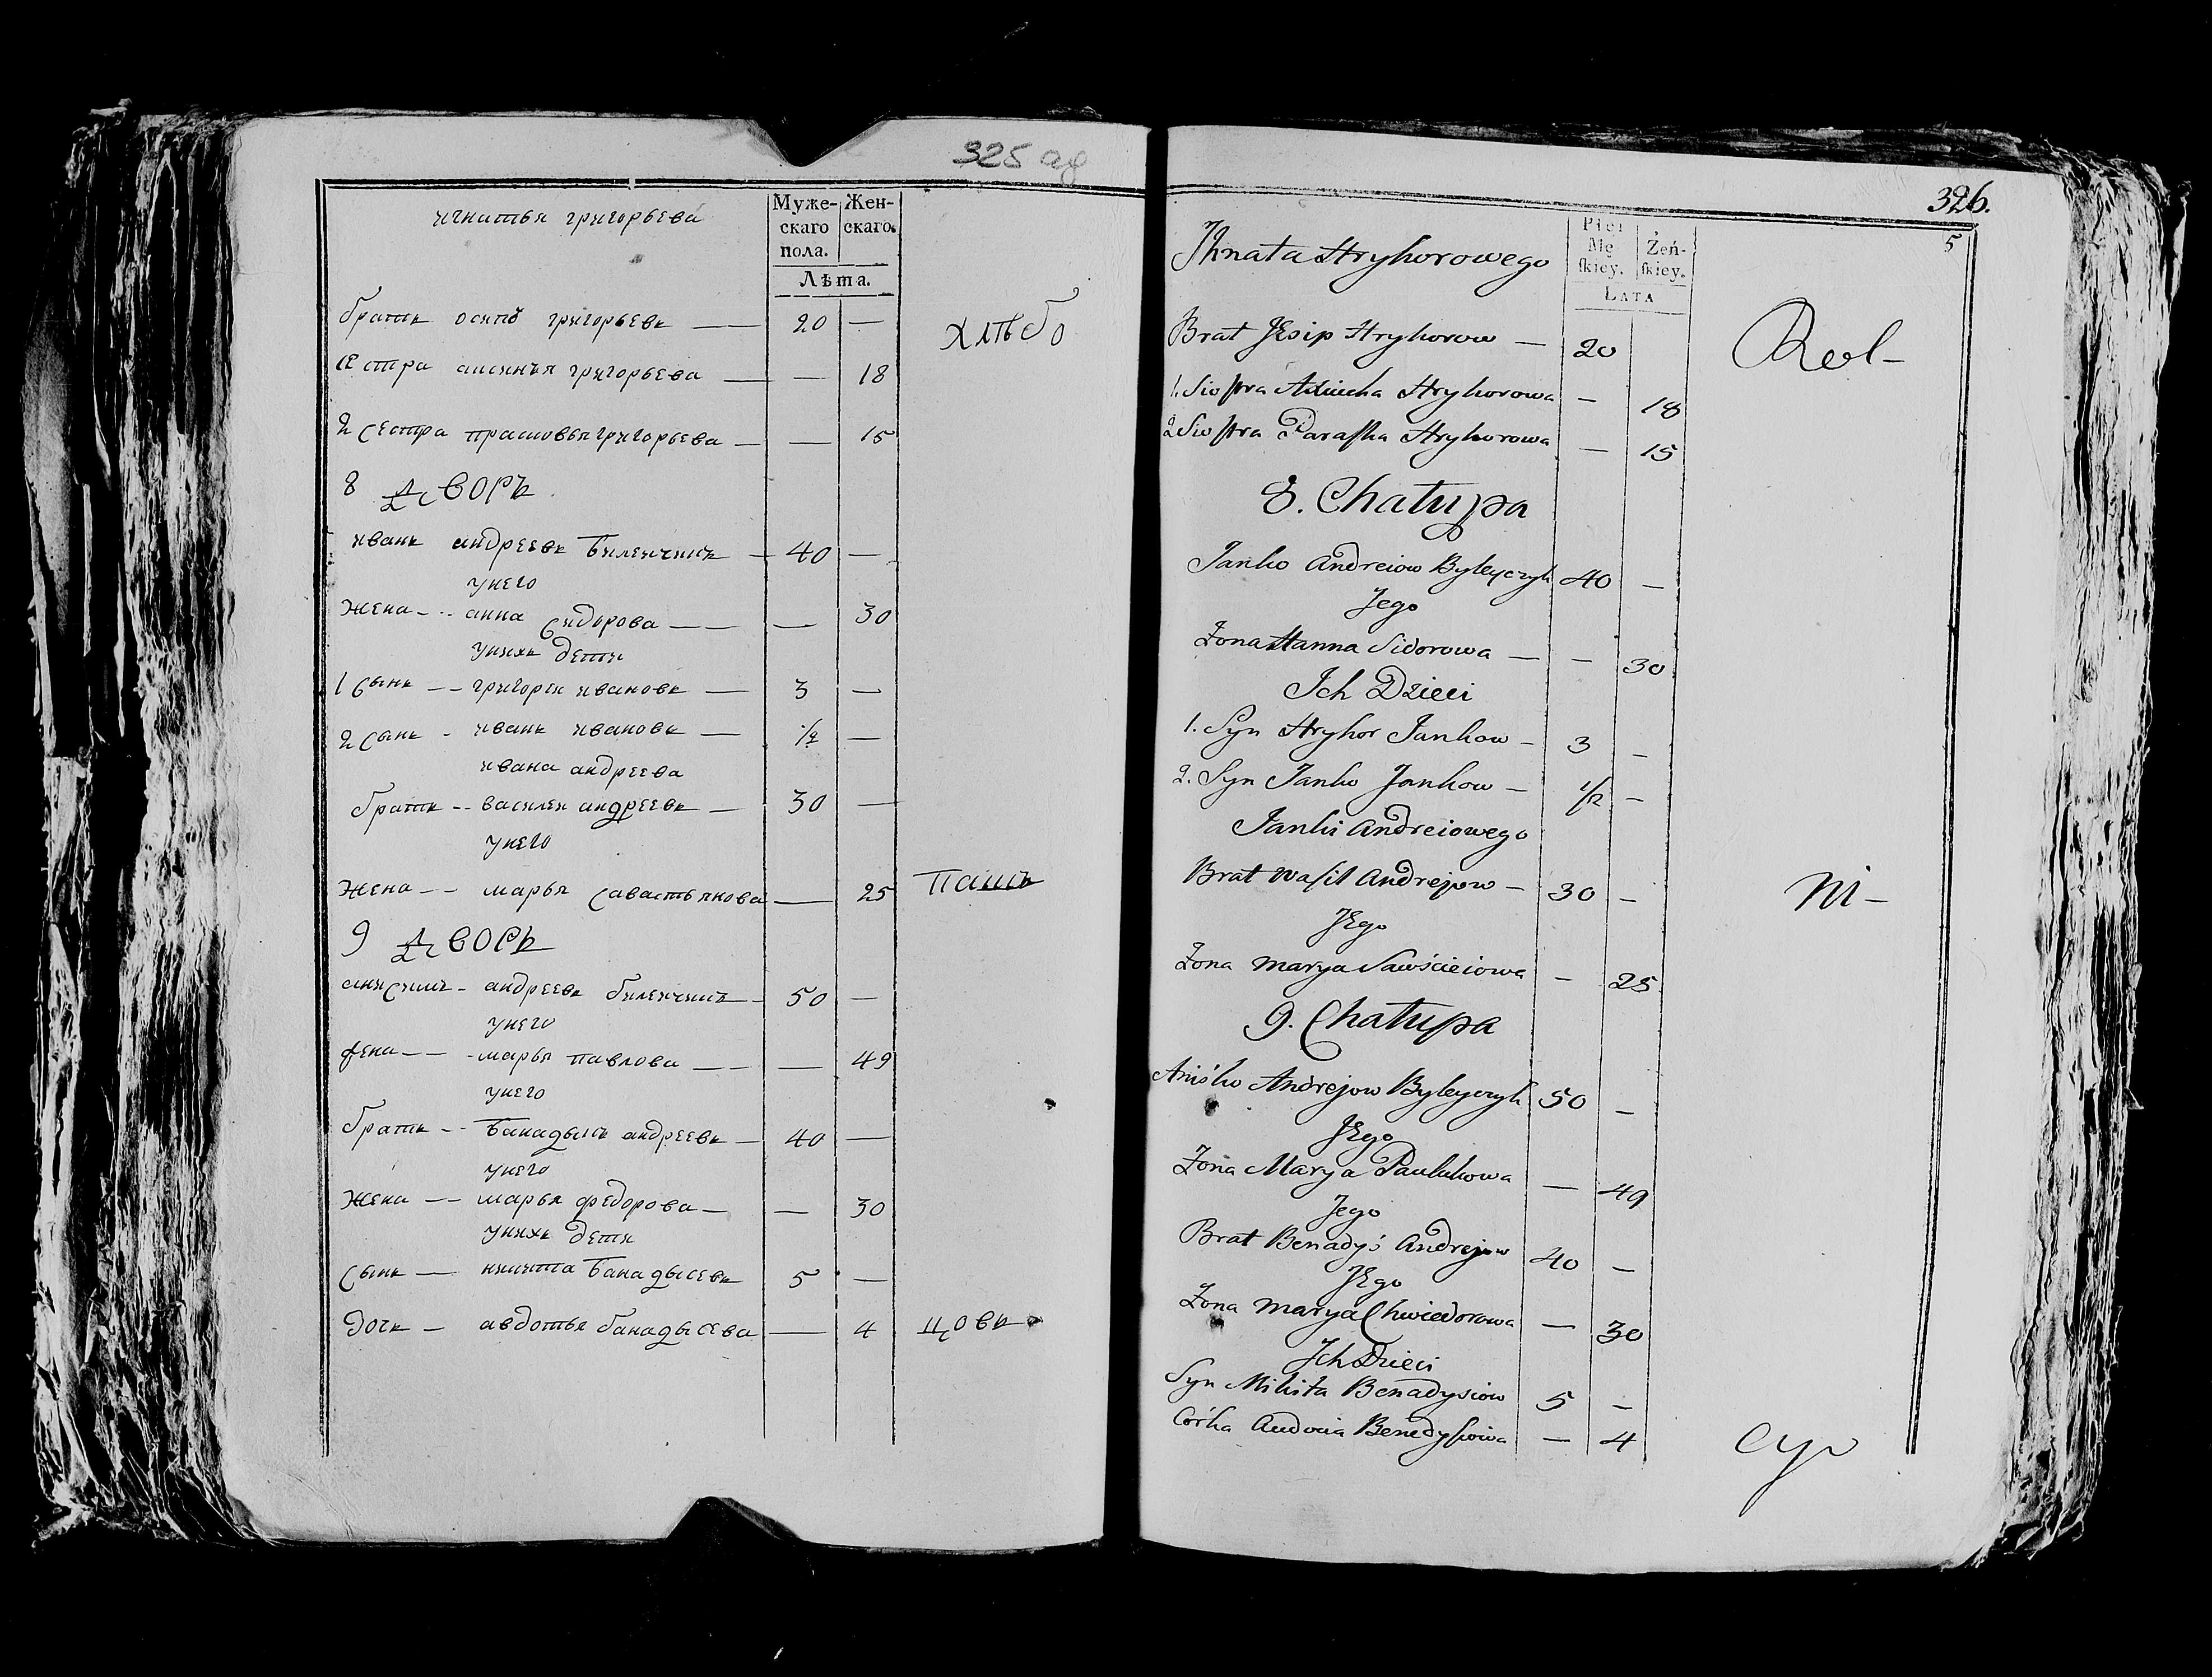 325 аб
игнатья григорьева
Муже-
скаго
пола.
Жен-
скаго.
Лѣта.
братъ осипъ григорьевъ — 20 —
хлѣбо
сестра аксинья григорьева — — 18
2 сестра прасковья григорьева — — 15
8 Дворъ
иванъ андреевъ билейчикъ — 40 —
унего
жена — анна сидорова — — 30
унихъ дети
1 сынъ — григореи ивановъ — 3 —
2 сынъ - иванъ ивановъ — 1/2 —
ивана андреева
братъ — василеи андреевъ — 30 —
унего
жена — марья савастьянова — 25
пашъ
9 Дворъ
анисимъ - андреевъ билейчикъ - 50 —
унего
жена — марья павлова — — 49
унего
братъ — банадысъ андреевъ — 40 —
унего
жена — марья федорова — — 30
унихъ дети
сынъ — никита банадысевъ 5 —
дочь — авдотья банадысева — 4
цовъ
326.
5
Ihnata Hryhorowego
Płci
Mę
skiey.
Żeń-
skiey.
LATA
Brat JEsip Hryhorow — 20
Rol-
1. Siostra Hryhorowa — 18
2 Siostra Paraska Hryhorowa — 15
8. Chałupa
Janko Andreiow Byleyczyk 40 —
Jego
Żona Hanna Sidorowa — — 30
Ich Dzieci
1. Syn Hryhor Jankow — 3 —
2. Syn Janko Jankow — 1/2 —
Janki Andreiowego
Brat Wasil Andrejow — 30 —
ni-
JEgo
Żona Marya Sawścieiowa — 25
9. Chałupa
Aniśko Andrejow Byleyczyk 50 —
JEgo
Żona Marya Paulukowa — 49
Jego
Brat Benadyś Andrejow 40 —
JEgo
Żona Marya Chwiedorowa — 30
Ich Dzieci
Syn Mikita Benadysiow 5 —
Córka Audocia Benedysiowa — 4
cy